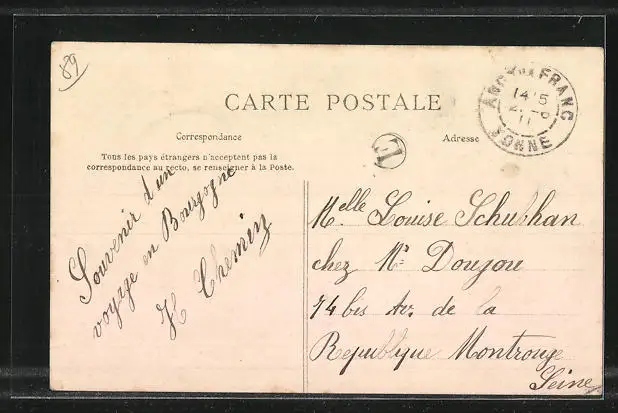 89
CARTE POSTALE
Correspondance
Adresse
Tous les pays étrangers n'acceptent pas la
correspondance au recto, se renseigner à la Poste.
Souvenir d'un
voyage en Bourgogne
H Chemin
ANCY LE FRANC
14 15
2 -6
11
YONNE
E
Melle Louise Schubhan
chez Mr Doujou
74 bis Av. de la
Republique Montrouge
Seine